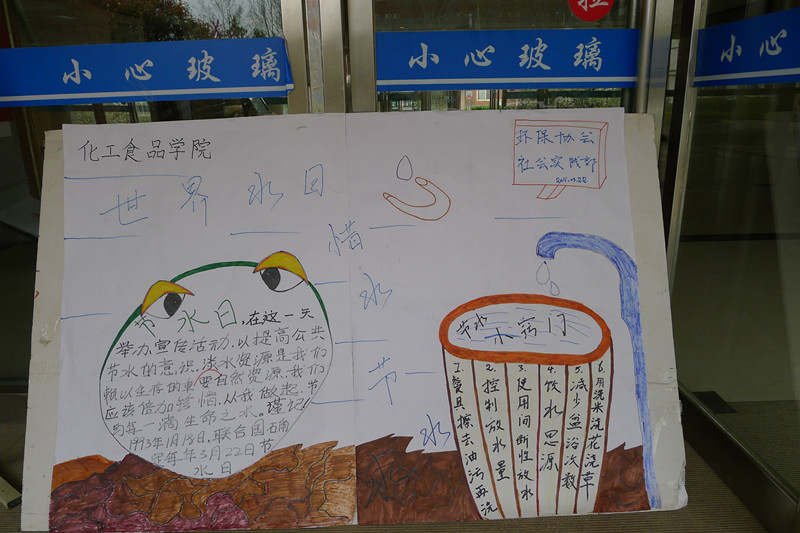 小心玻璃
小心玻璃
小心
检
化工食品学院
世界水日
惜水节水
环保协会
社会实践部
节水日,在这一天
举办宣传活动,以提高公共
节水的意识。淡水资源是我们
赖以生存的重要自然资源,我们
应该倍加珍惜,从我做起,节
约每一滴生命之水。谨记
1993年1月18日,联合国确
定每年3月22日节
水日
节水
小窍门
1.餐具擦去油污再洗
2.控制放水量
3.使用间断性放水
4.饮水思源
5.减少盆浴次数
6.用洗米浇花浇草